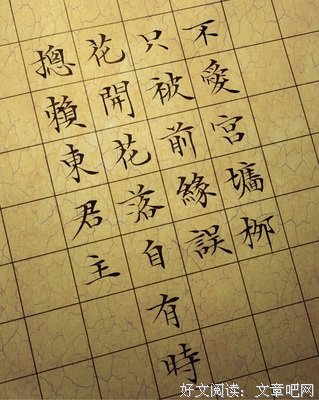 不愛宮墉栁
只被前緣誤
花開花落自有時
摠賴東君主
好文阅读:文章吧网